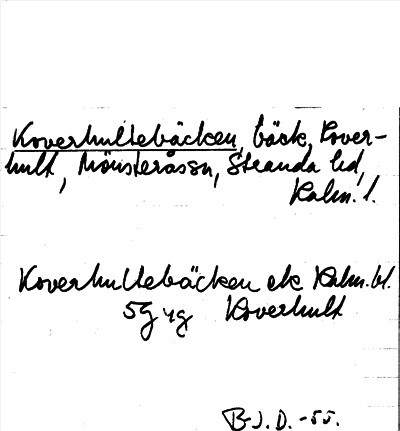 Koverhultebäcken, bäck, Kover-
hult, Mönsterås sn, Stranda hd,
Kalm. l.
Koverhultebäcken ek Kalm. bl.
5G 4g Koverhult
B-J. D. -55.